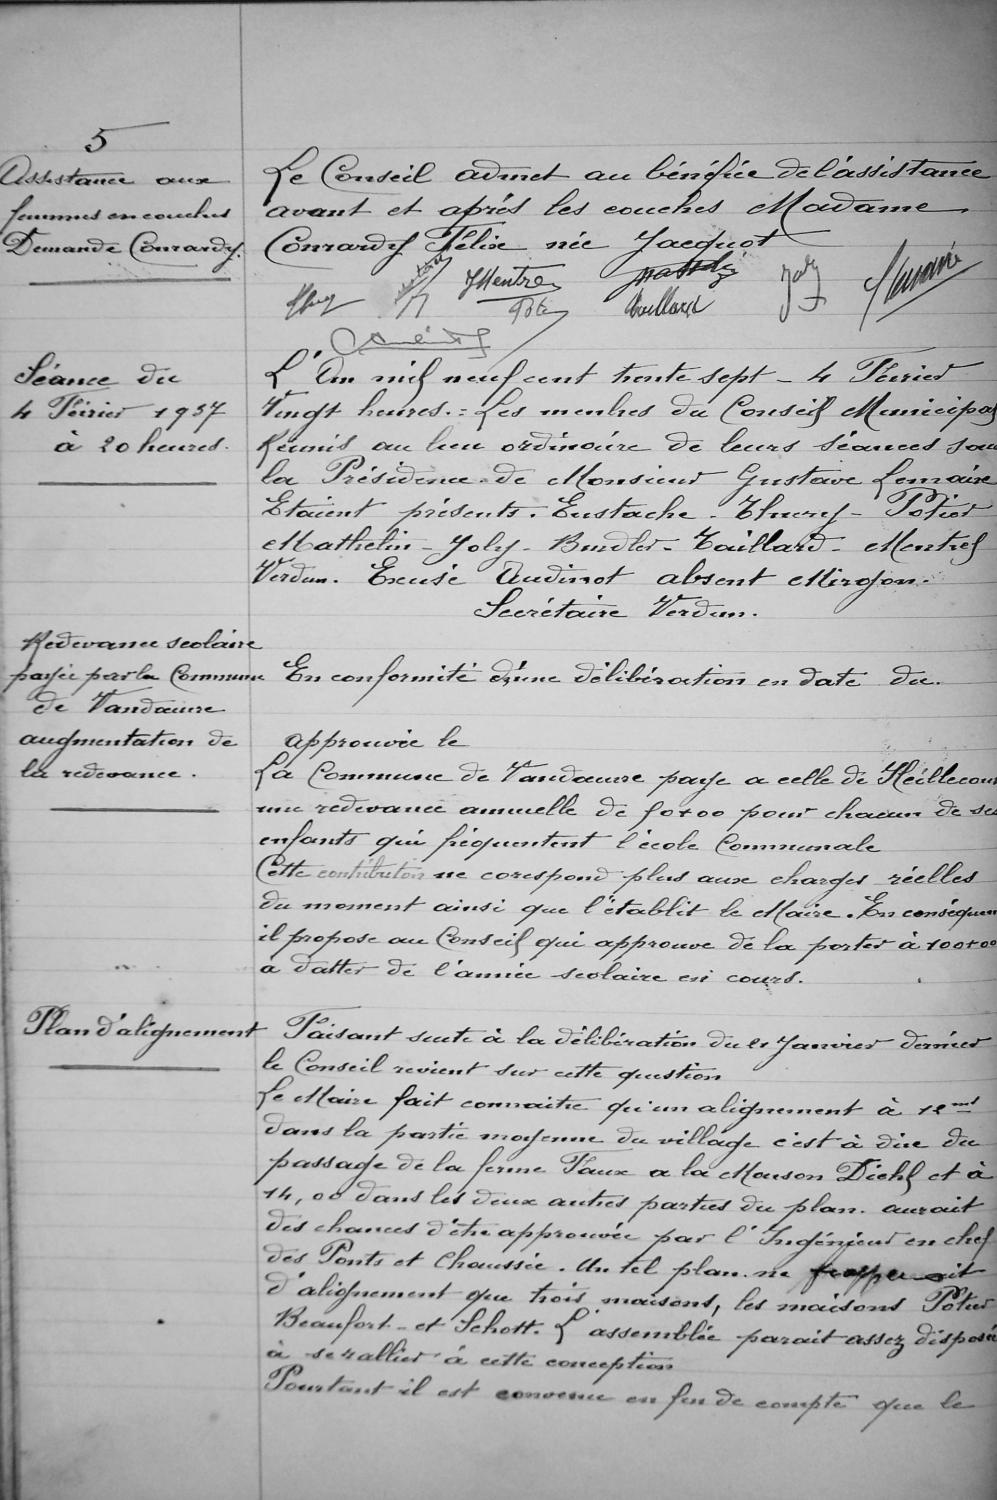 5
Assistance aux
femmes en couches
Demande Conrardy.
Le Conseil admet au bénéfice de l'assistance
avant et aprés les couches Madame
Conrardy Félix née Jacquot
Séance du
4 Février 1937
à 20 heures.
L'An mil neuf cent trente sept - 4 Février
Vingt heures. = Les menbres du Conseil Municipal
Réunis au lieu ordinaire de leurs séances sous
la Présidence de Monsieur Gustave Lemaire
Etaient présents. Eustache - Thurey - Potier
Mathelin - Joly - Taillard - Mentrel
Verdun. Excusé Audinot absent Mirgon.
Secrétaire Verdun.
Redevance scolaire
payée par la Commune
de Vandœuvre
augmentation de
la redevance.
En conformité d'une délibération en date du.
approuvée le
La Commune de Vandœuvre paye a celle de Heillecourt
une redevance annuelle de 50+00 pour chacun de ses
enfants qui fréquentent l'école Communale
Cette contribution ne corespond plus aux charges réelles
du moment ainsi que l'établit le Maire. En conséquence
il propose au Conseil qui approuve de la porter à 100+00
a datter de l'année scolaire en cours.
Plan d'alignement
Faisant suite à la délibération du 21 Janvier dernier
le Conseil revient sur cette question
Le Maire fait connaitre qu'un alignement à 12 mt
dans la partie moyenne du village c'est à dire du
passage de la ferme Faux a la Maison Diehl et à
14,00 dans les deux autres parties du plan. aurait
des chances d'être approuvée par l'Ingénieur en chef
des Ponts et Chaussée. Un tel plan ne frapperait
d'alignement que trois maisons, les maisons Potier
Beaufort - et Schott. L'assemblée parait assez disposée
à se rallier à cette conception
Pourtant il est convenu en fin de compte que le